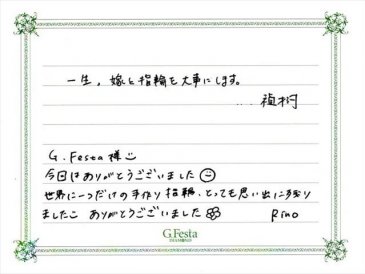 一生、嫁と指輪を大事にします。
....禎樹
G.Festa様
今回はありがとうございました
世界に一つだけの手作り指輪、とっても思い出になり
ました。ありがとうございました Rino
G.Festa
DIAMOND